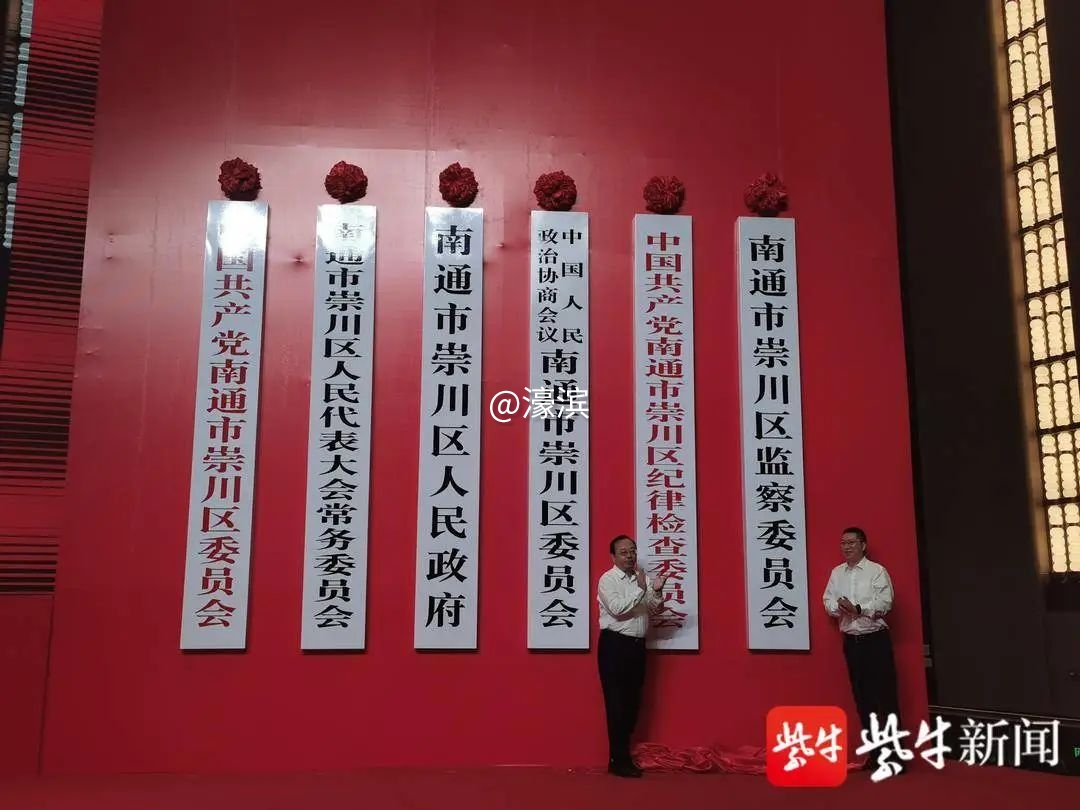 国共产党南通市崇川区委员会
南通市崇川区人民代表大会常务委员会
南通市崇川区人民政府
中国人民
政治协商会议
南通市崇川区委员会
中国共产党南通市崇川区纪律检查委员会
南通市崇川区监察委员会
@濠滨
紫牛
紫牛新闻